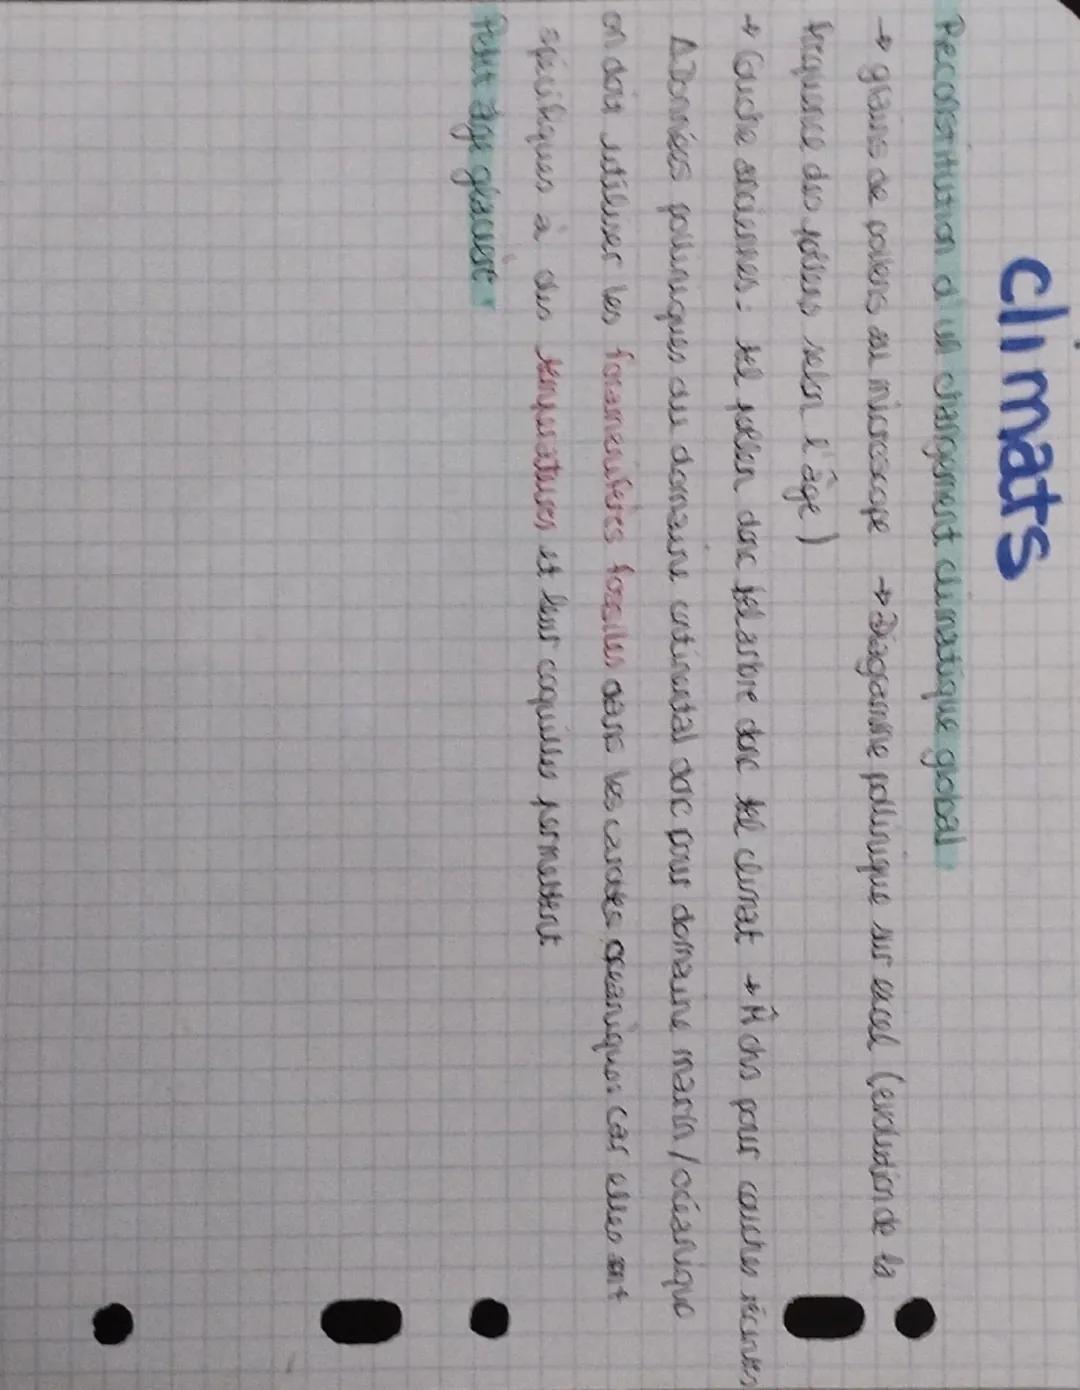 climats
Reconstitution d'un changement climatique global
→ grains de pollens au microscope → Diagramme pollinique sur excel (évolution de la
fréquence des pollens selon l'âge)
→ Couche anciennes : tel pollen donc tel arbre donc tel climat → M̂ chs pour couches récentes
⚠ Données polliniques du domaine continental donc pour domaine marin / océanique
on doit utiliser les foraminifères fossiles dans les carottes océaniques car elles sont
spécifiques à des températures et leur coquilles permettent
Petit âge glaciaire